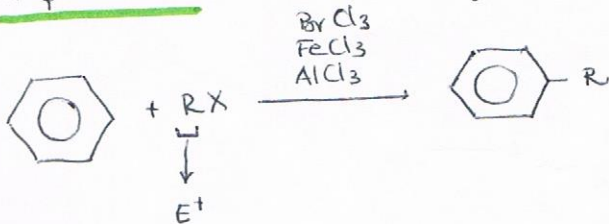 Br Cl3
FeCl3
AlCl3
+ RX
R
E+